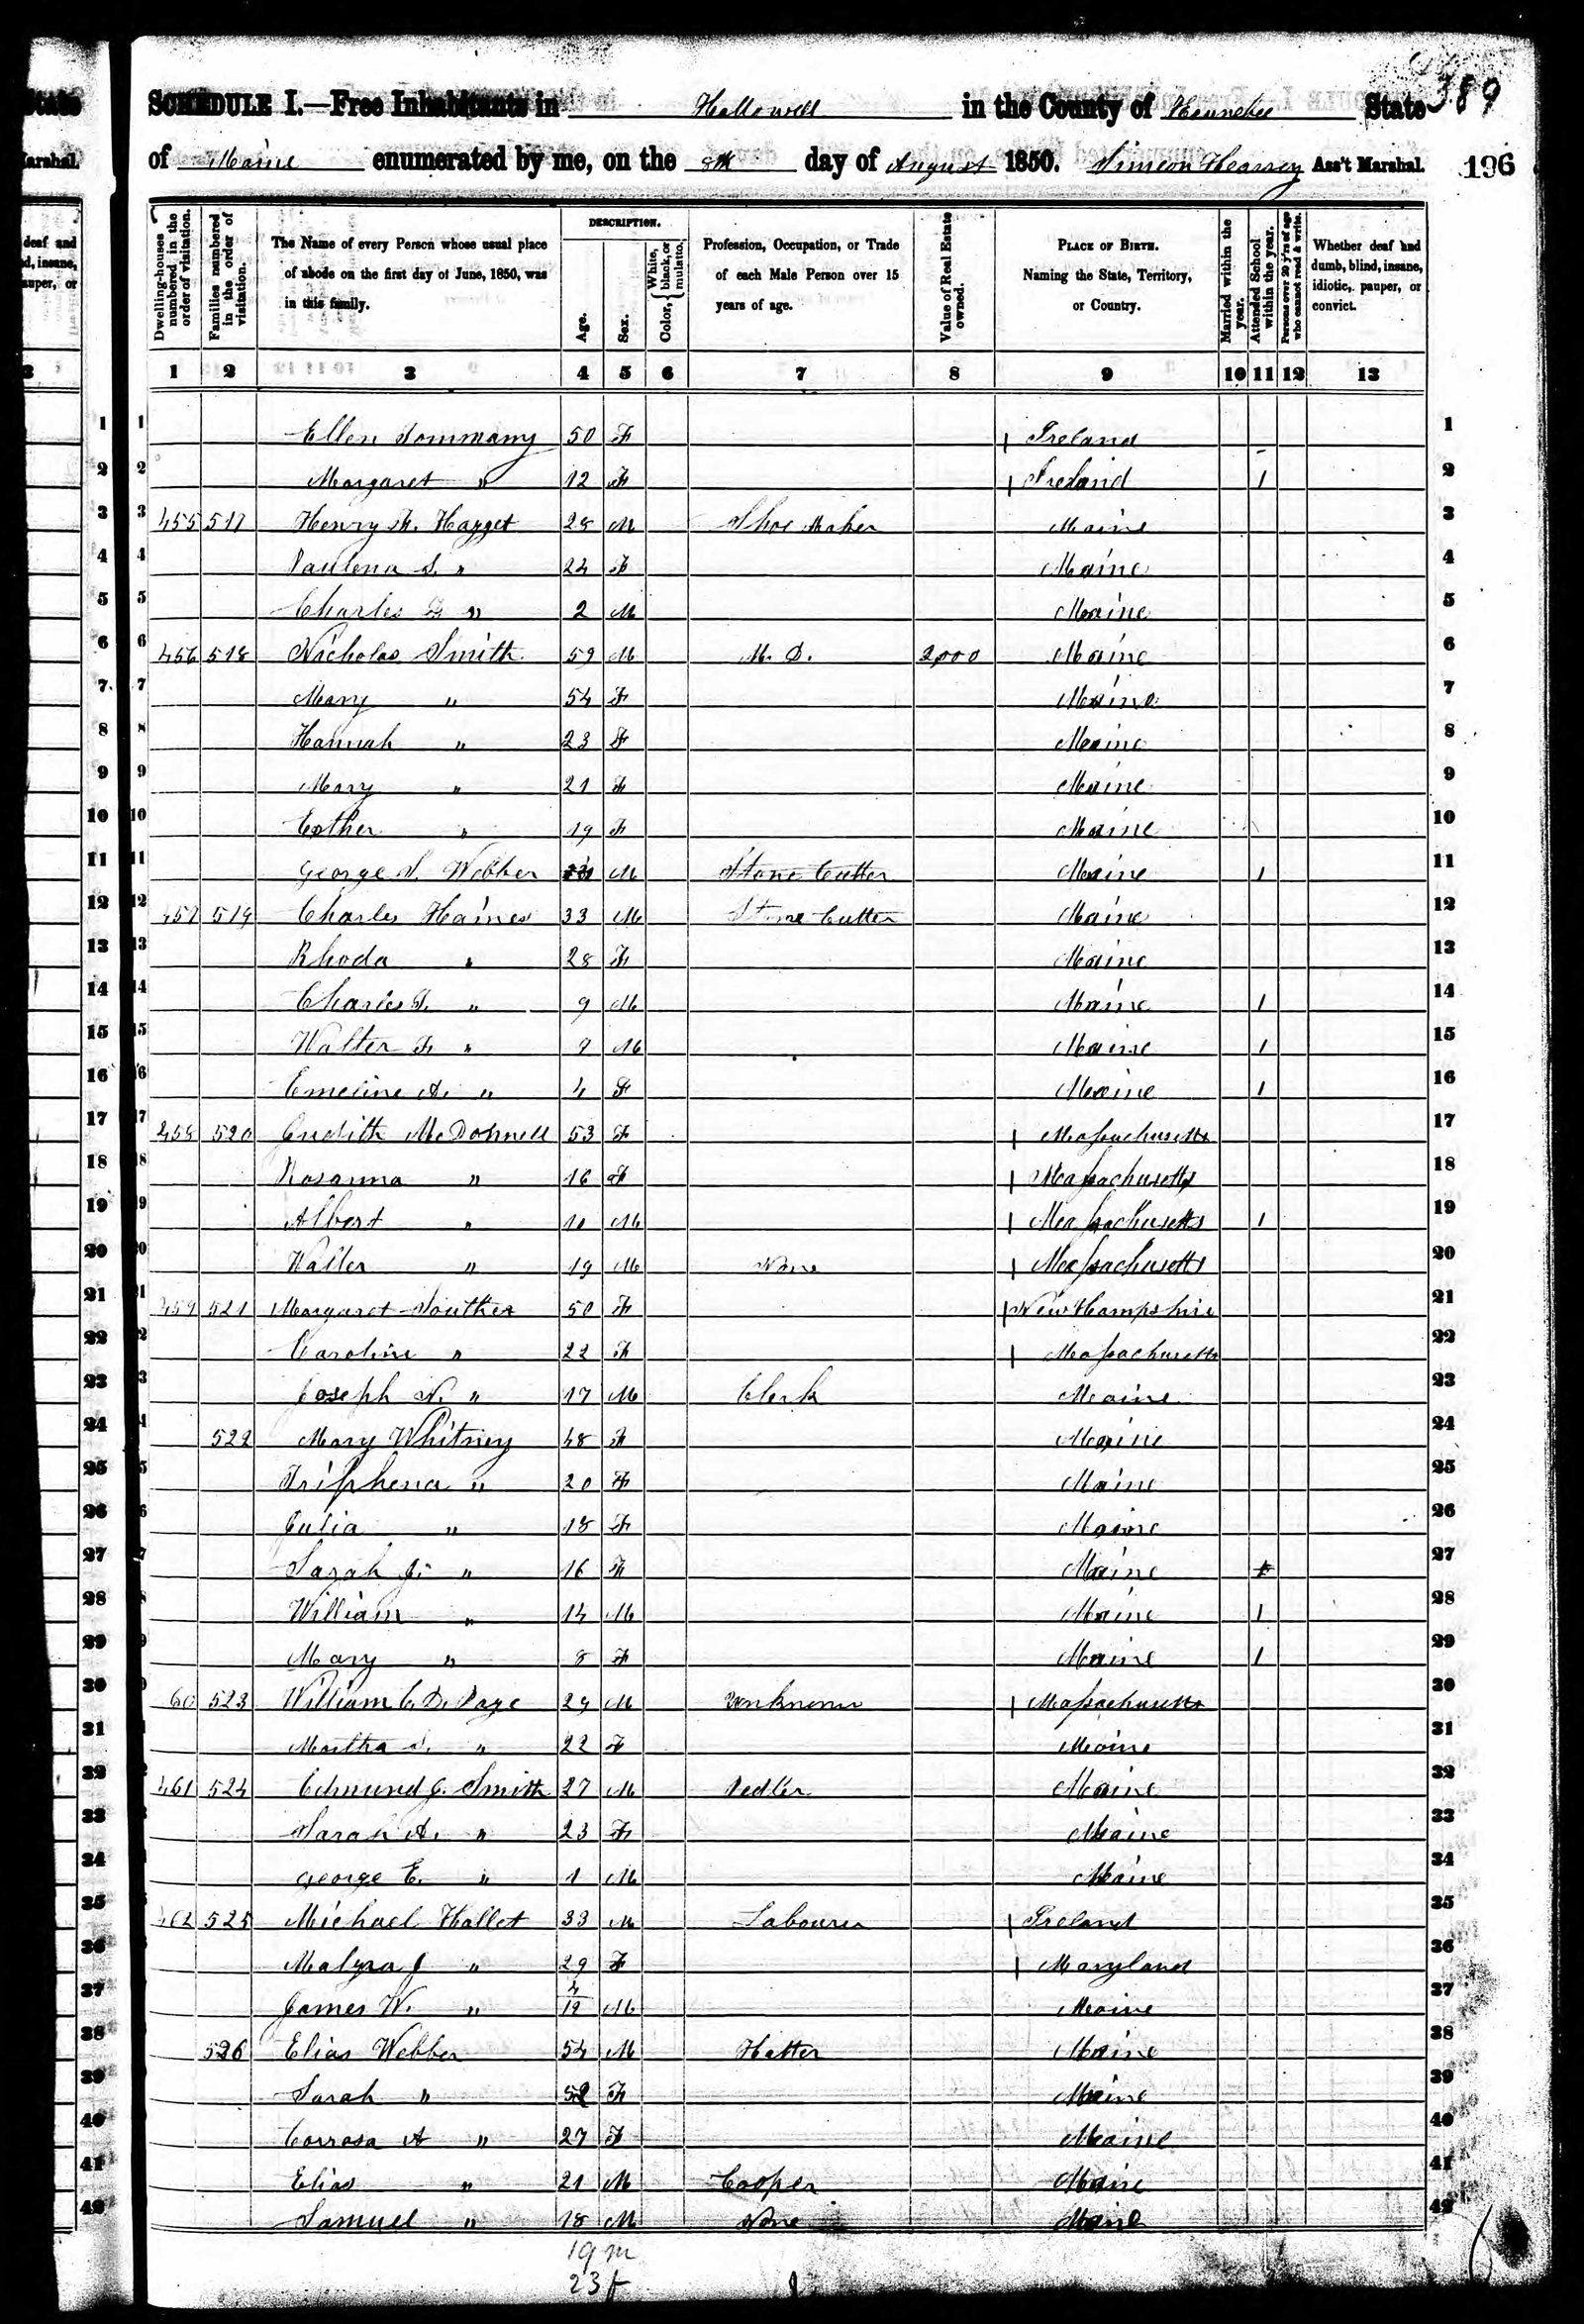 389
SCHEDULE I.—Free Inhabitants in Hallowell in the County of Kennebec State
of Maine enumerated by me, on the 8th day of August 1850. Simeon Hearsey Ass't Marshal. 196
Dwelling-houses numbered in the order of visitation. | Families numbered in the order of visitation. | The Name of every Person whose usual place of abode on the first day of June, 1850, was in this family. | DESCRIPTION. | Age. | Sex. | Color, { White, black, or mulatto. | Profession, Occupation, or Trade of each Male Person over 15 years of age. | Value of Real Estate owned. | PLACE OF BIRTH. Naming the State, Territory, or Country. | Married within the year. | Attended School within the year. | Persons over 20 y'rs of age who cannot read & write. | Whether deaf and dumb, blind, insane, idiotic, pauper, or convict.
1 2 3 4 5 6 7 8 9 10 11 12 13
1 Ellen 50 F Ireland 1
2 Margaret " 12 F Ireland 1 2
3 455 517 Henry Hagget 28 M Shoe Maker Maine 3
4 Paulena S. " 24 F Maine 4
5 Charles " 2 M Maine 5
6 456 518 Nicholas Smith 59 M M. D. 2,000 Maine 6
7 Mary " 54 F Maine 7
8 Hannah " 23 F Maine 8
9 Mary " 21 F Maine 9
10 Esther " 19 F Maine 10
11 George S. Webber M Stone Cutter Maine 1 11
12 457 519 Charles Haines 33 M Stone Cutter Maine 12
13 Rhoda " 28 F Maine 13
14 Charles " 9 M Maine 1 14
15 Walter F. " M Maine 1 15
16 Emeline A. " 4 F Maine 1 16
17 458 520 Judith McDonnell 53 F Massachusetts 17
18 Rosanna " 16 F Massachusetts 18
19 Albert " M Massachusetts 1 19
20 Walter " 19 M None Massachusetts 20
21 459 521 Margaret Souther 50 F New Hampshire 21
22 Caroline " 22 F Massachusetts 22
23 Joseph N. " 17 M Clerk Maine 23
24 522 Mary Whitney 48 F Maine 24
25 Triphena " 20 F Maine 25
26 Julia " 18 F Maine 26
27 Sarah J. " 16 F Maine 27
28 William " 14 M Maine 1 28
29 Mary " 8 F Maine 1 29
60 523 William C. D. Page 29 M Unknown Massachusetts 30
Martha S. " 22 F Maine 31
461 524 Edmund J. Smith 27 M Pedler Maine 32
Sarah A. " 23 F Maine 33
George E. " 1 M Maine 34
462 525 Michael Hallet 33 M Labourer Ireland 35
J " 29 F Maryland 36
James W. " M Maine 37
526 Elias Webber 54 M Hatter Maine 38
Sarah " 52 F Maine 39
A " 27 F Maine 40
Elias " 21 M Cooper Maine 41
Samuel " 18 M None Maine 42
19 m
23 f